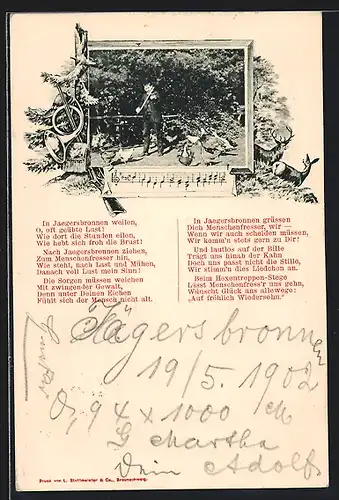 In Jaegersbronnen weilen,
O, oft geübte Lust!
Wie dort die Stunden eilen,
Wie hebt sich froh die Brust!
Nach Jaegersbronnen ziehen,
Zum Menschenfresser hin,
Wie steht, nach Last und Mühen,
Danach voll Lust mein Sinn!
Die Sorgen müssen weichen
Mit zwingender Gewalt,
Denn unter Deinen Eichen
Fühlt sich der Mensch nicht alt.
In Jaegersbronnen grüssen
Dich Menschenfresser, wir —
Wenn wir auch scheiden müssen,
Wir komm'n stets gern zu Dir!
Und lautlos auf der Bille
Trägt uns hinab der Kahn
Doch uns passt nicht die Stille,
Wir stimm'n dies Liedchen an.
Beim Hexentreppen-Stege
Lässt Menschenfress'r uns gehn,
Wünscht Glück uns allewege:
„Auf fröhlich Wiedersehn."
Jägersbronnen
19/5. 1902
94 x 1000
Martha
Dein Adolf
Druck von L. Stottmeister & Co., Braunschweig.